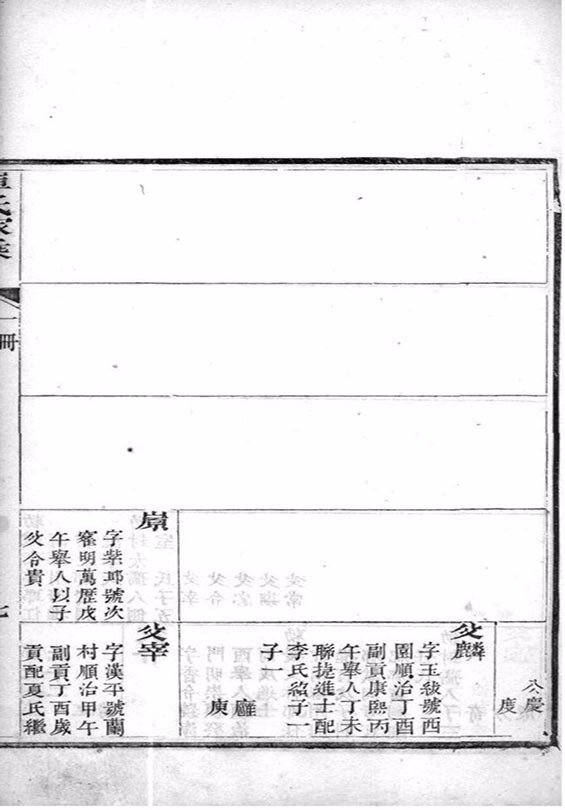 字紫邱號次
奮明萬歷戊
午舉人以子
父令貴
公慶
度
父麟
字玉紱號西
園順治丁酉
副貢康熙丙
午舉人丁未
聯捷進士配
李氏繼子一
子
廱
庚
父宰
字漢平號蘭
村順治甲午
副貢丁酉歲
貢配夏氏繼
單氏家乘
一冊
七